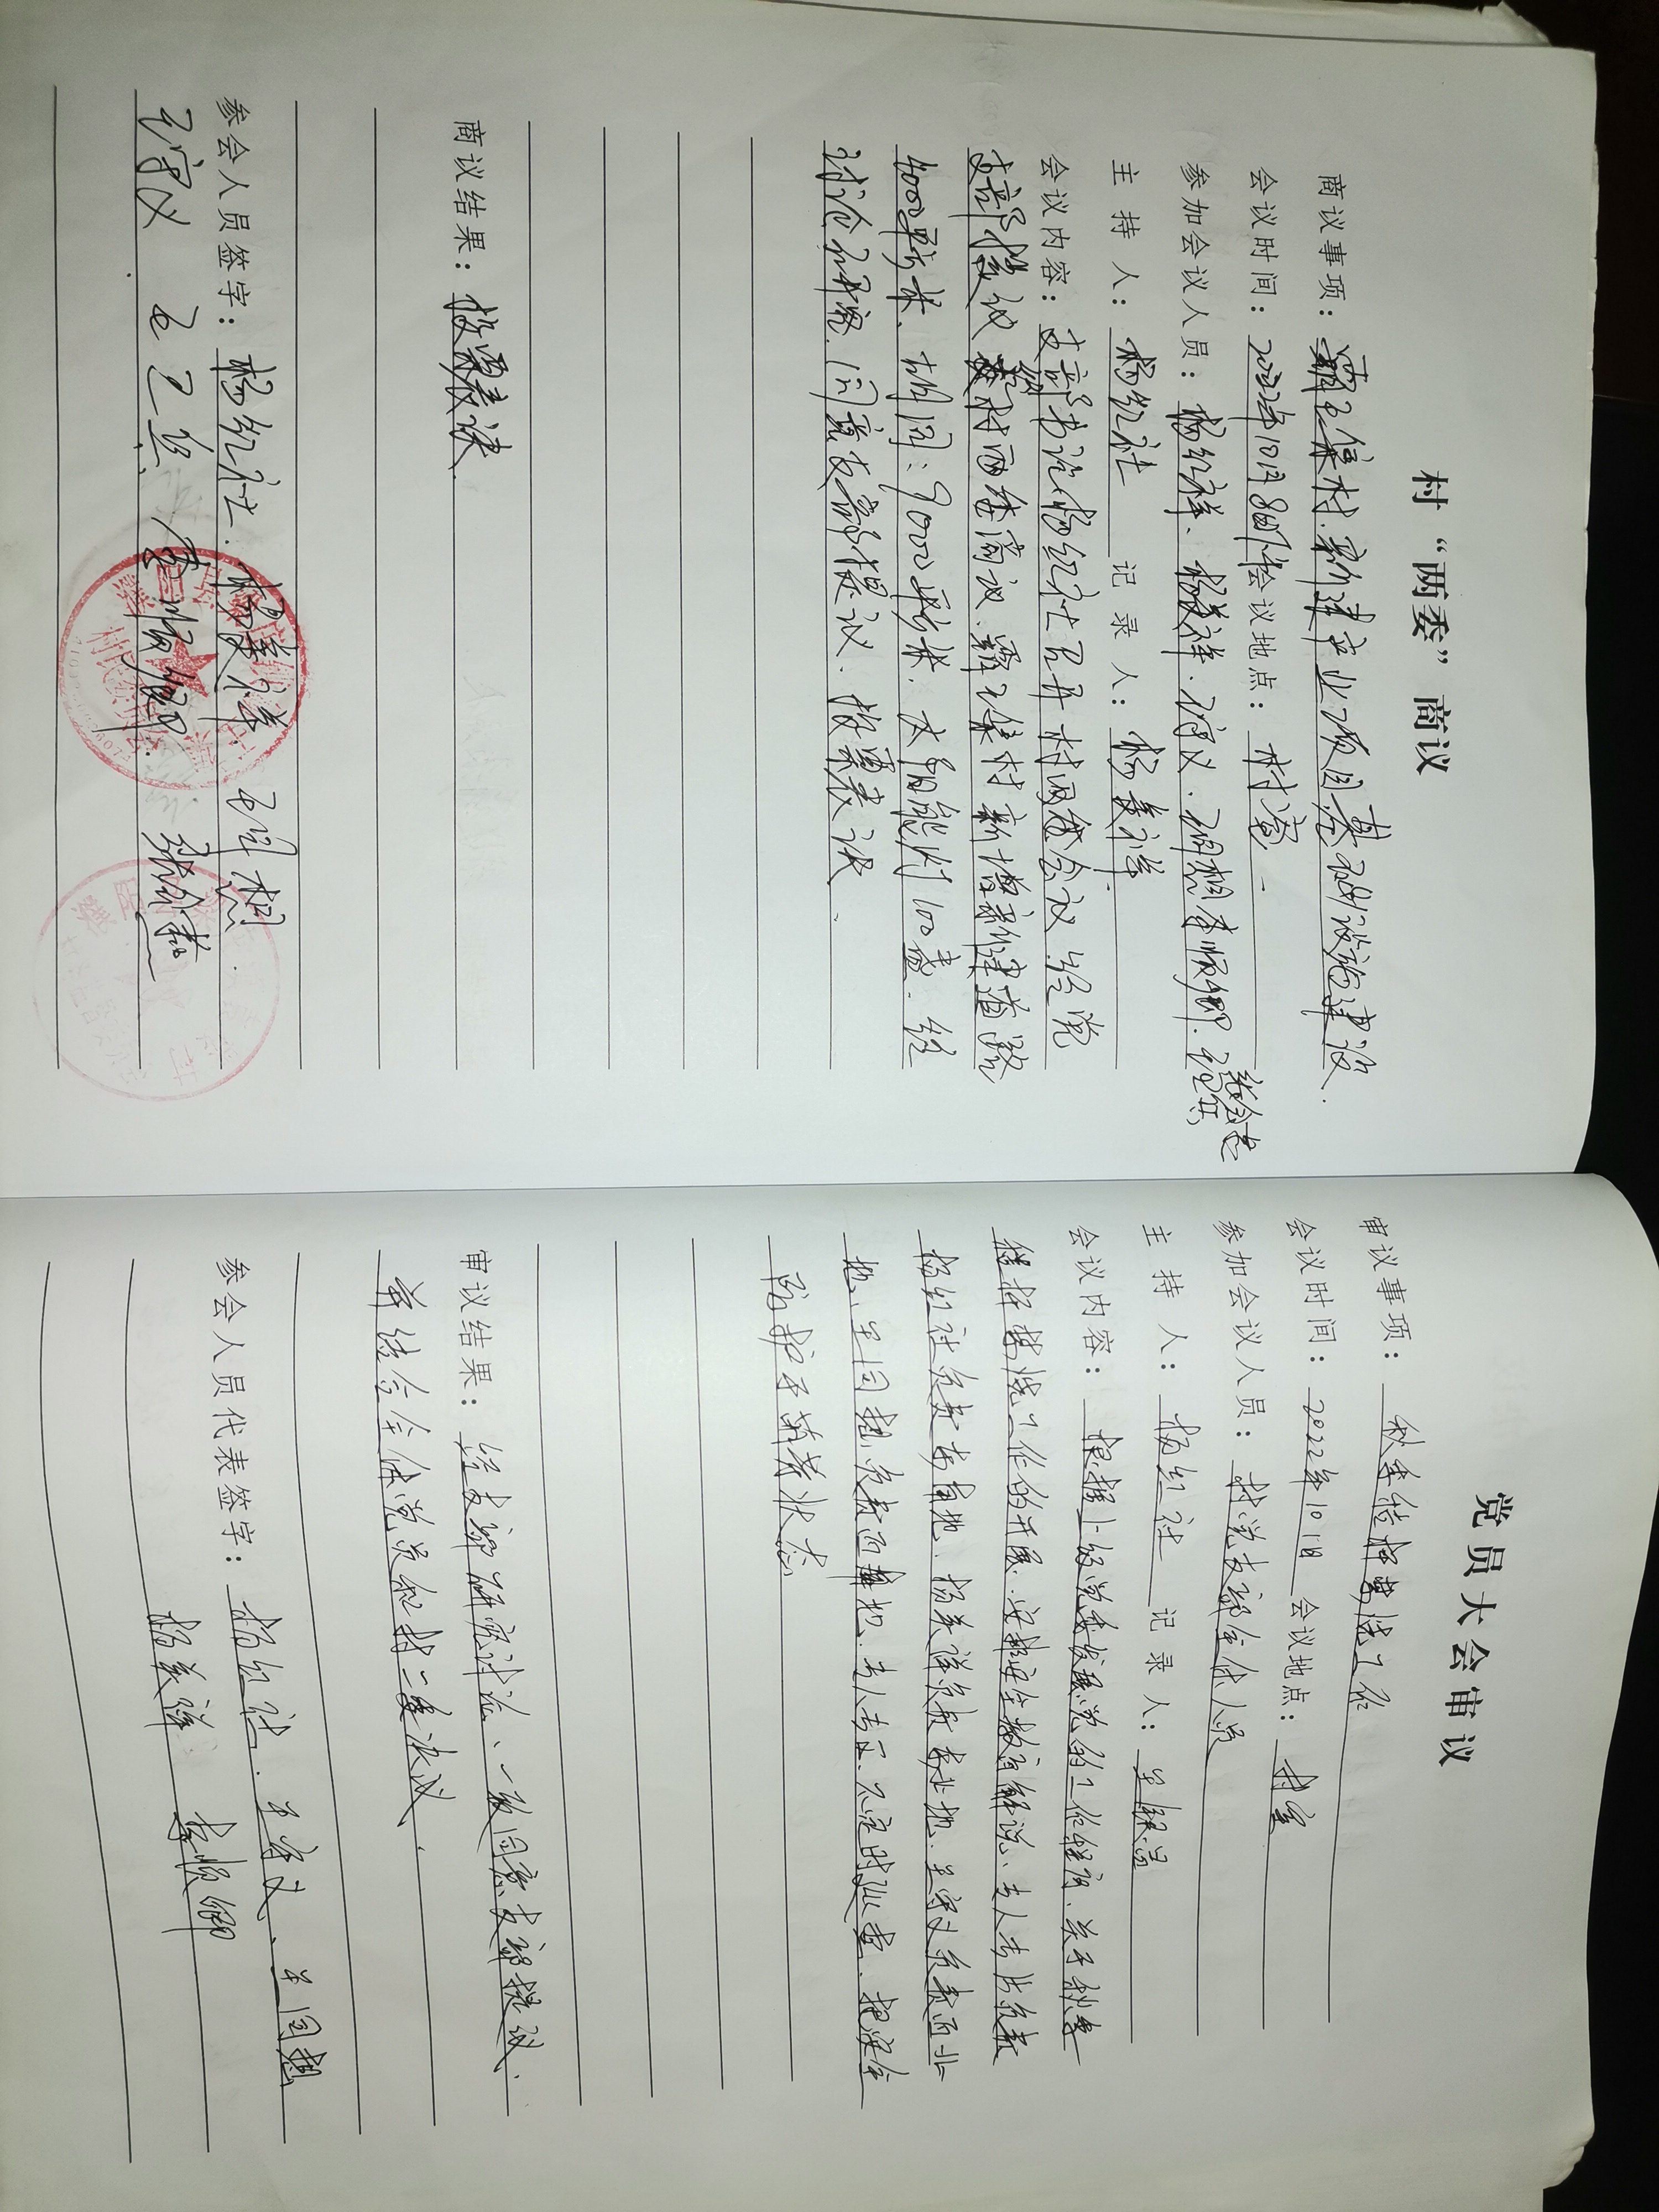 村“两委”商议
商议事项：霸王集村.新建产业项目基础设施建设.
会议时间：2022年10月8日下午会议地点：村室
参加会议人员：杨红祥、杨美祥.王守义、王同想李顺卿.王卫兵
主持人：杨红社 记录人：杨美祥
会议内容：支部书记杨红社召开村两委会议 经党
支部提议 经村两委商议.霸王集村新增新建道路
4000平方米、胡同：9000平方米.太阳能灯100盏.经
讨论研究.同意支部提议.投票表决.
商议结果：投票表决.
参会人员签字：杨红社.杨美祥.王同想.
王守义 王卫兵 李顺卿.
村民委员会
党员大会审议
审议事项：秋季秸秆禁烧工作
会议时间：2022年10 1日 会议地点：村室
参加会议人员：村党支部全体人员
主持人：杨红社 记录人：王银昌
会议内容：根据上级党委发展党的工作程序.关于秋季
秸秆禁烧工作的开展.安排安全教育解说、专人专片负责
杨红社负责东南地.杨美祥负责东北地.王守义负责西北
地、王同想负责西南地.专人专区.不定时巡查.把安全
防护于萌芽状态
审议结果：经支部研究讨论、一致同意支部提议.
并结合全体党员和村二委决议.
参会人员代表签字：杨红社.王守义、王同想
杨美祥 李顺卿